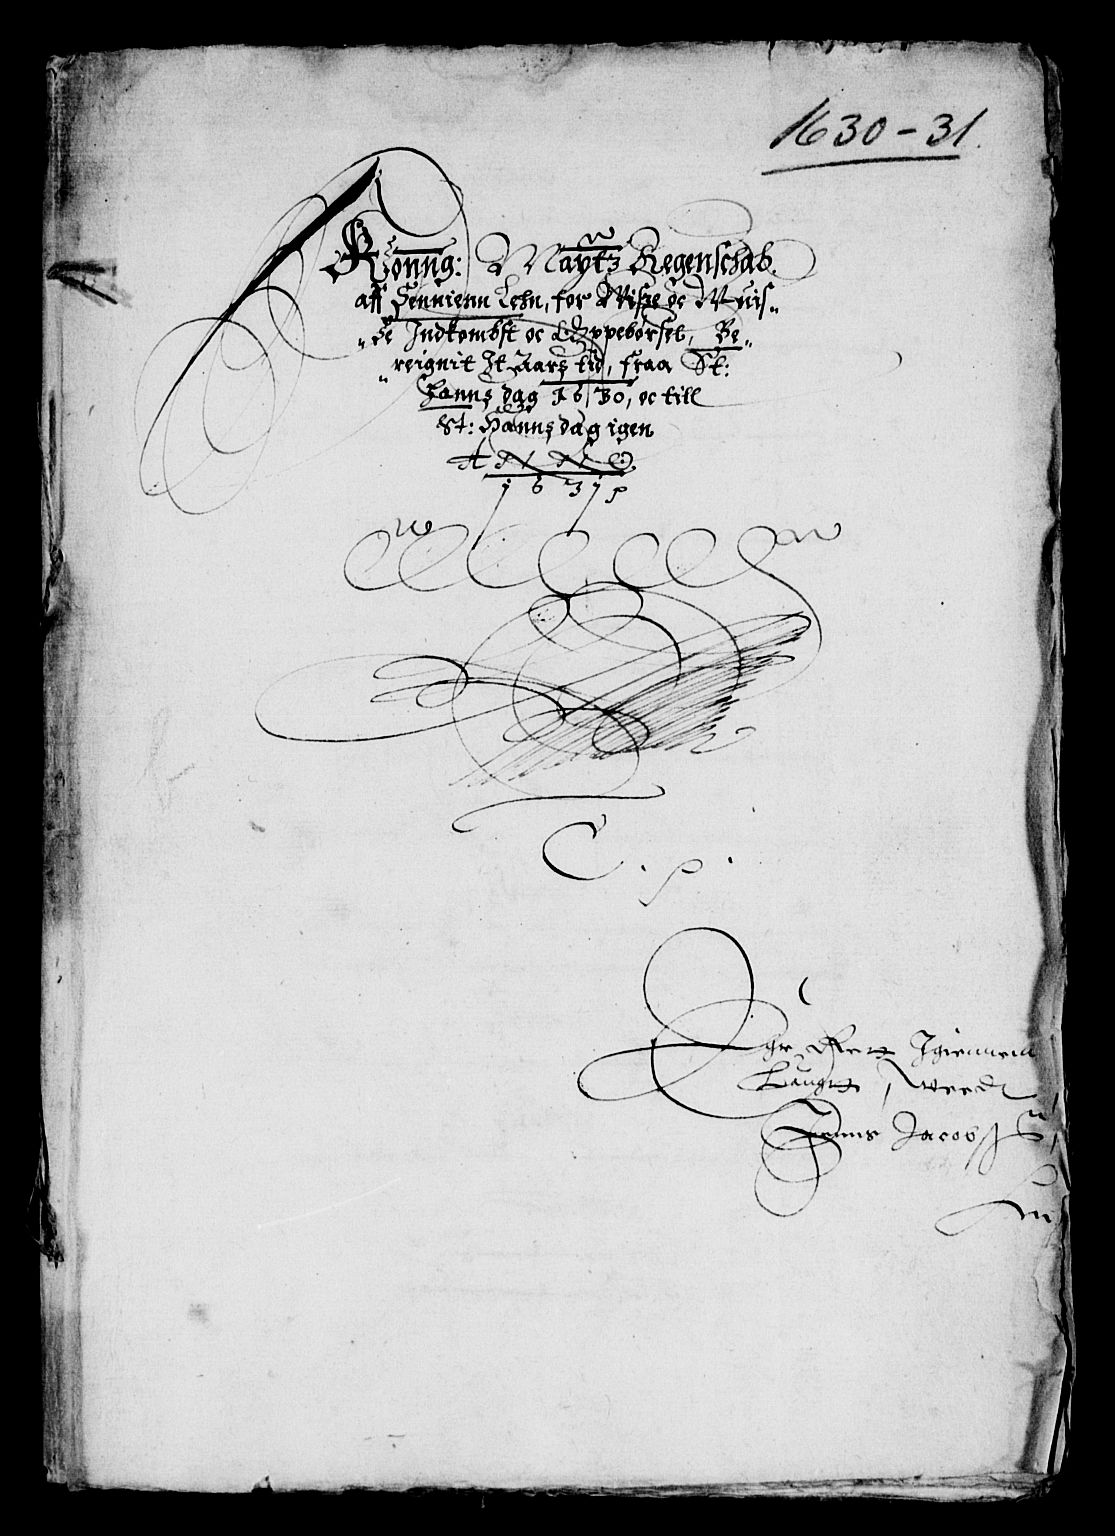 1630-31.
Konng: Maytz Regenschab.
aff Sennienn Lehn, for Visse oc Wuis„
„se Indkombst oc Oppebørsel, Be„
„reignit It Aars tid, fraa St:
Hanns dag 1630, oc till
St: Hanns dag igen
ANNO.
1631
C. p.
Jgiennem
Laugtt, Weedt
Jenns Jacobs